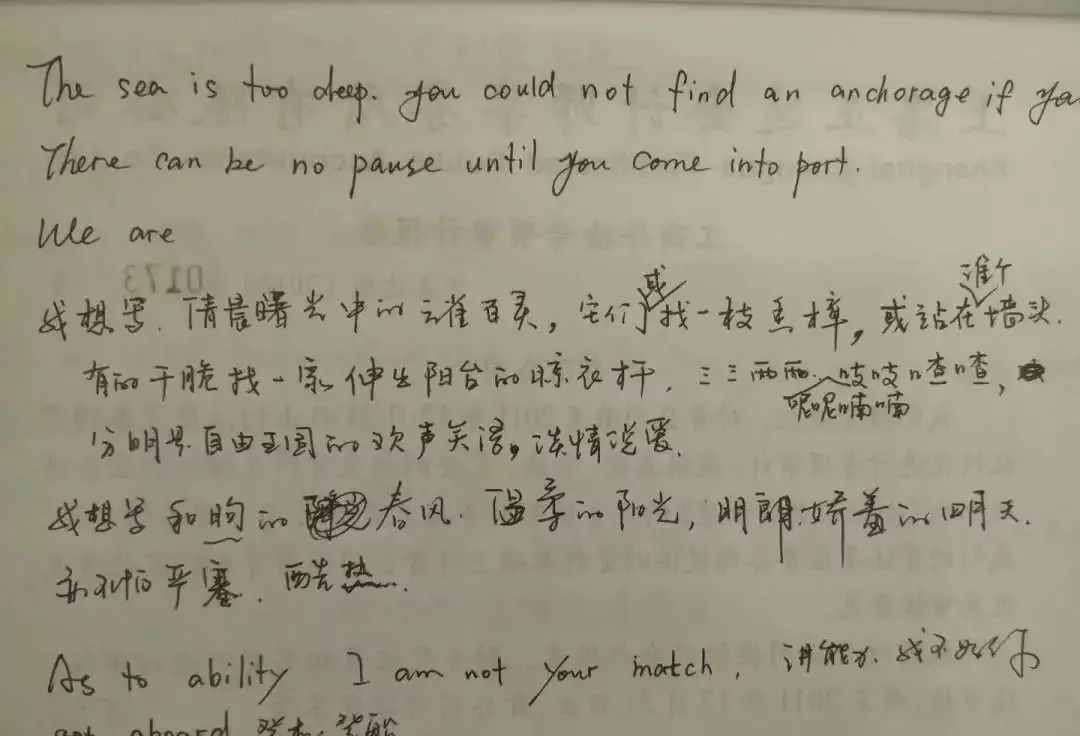 The sea is too deep. you could not find an anchorage if you
There can be no pause until you come into port.
We are
我想写.清晨曙光中的云雀百灵,它们或找一枝香樟,或站在谁个墙头.
有的干脆找一家伸出阳台的晾衣杆.三三两两.吱吱喳喳,
呢呢喃喃
分明是自由王国的欢声笑语,谈情说爱.
我想写和煦的春风.温柔的阳光,明朗.娇羞的四月天.
严寒.酷热.
As to ability I am not your match, 讲能力.我不如你
got aboard 登机.登船
0173